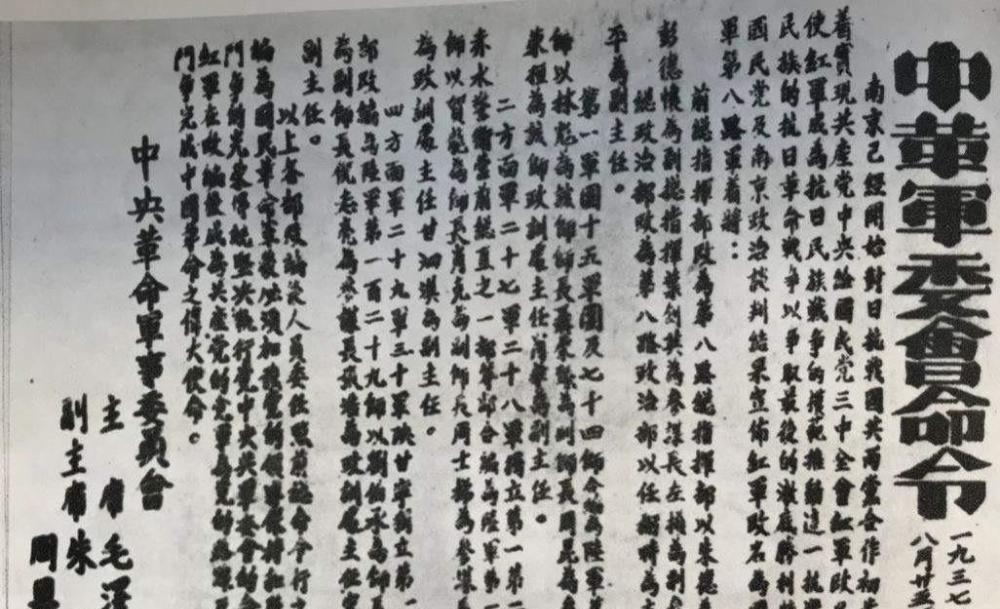 中革軍委會命令
一九三七
八月廿五
南京已經開始對日抗戰國共兩黨合作初
著實現共產黨中央給國民黨三中全會紅軍改
使紅軍成為抗日民族戰争的模範推動這一抗
民族的抗日革命戰争以争取最後的澈底勝利
國民黨及南京政治談判結果宣佈紅軍改名為
軍第八路軍着將：
前總指揮部改為第八路總指揮部以朱德
彭德懷為副總指揮葉剑英為參謀長左權為副
總政治部改為第八路政治部以任㢸時為
平為副主任。
第一軍團十五軍團及七十四師合編為陸軍
師以林彪為該師師長聶榮臻為副師長周昆為
榮桓為該師政訓處主任肖華為副主任。
二方面軍二十七軍二十八軍獨立第一第二
赤水警衛營前總直之一部等部合編為陸軍第
師以賀龍為師長肖克為副師長周士梯為參謀
為政訓處主任甘泗淇為副主任。
四方面軍二十九軍三十軍陝甘寧獨立第一
部改編為陸軍第一百二十九師以劉伯承為師
為副師長倪志亮為參謀長張浩為政訓處主任
副主任。
以上各部改編後人員委任照前總命令行之
編為國民革命軍後必須加強黨的領導保持和
鬥争的光榮傳統堅決執行黨中央與軍委會的命
紅軍在改編後成為共產黨的
鬥争完成中國革命之偉大使命。
中央革命軍事委員会
主席毛澤
副主席朱
周恩